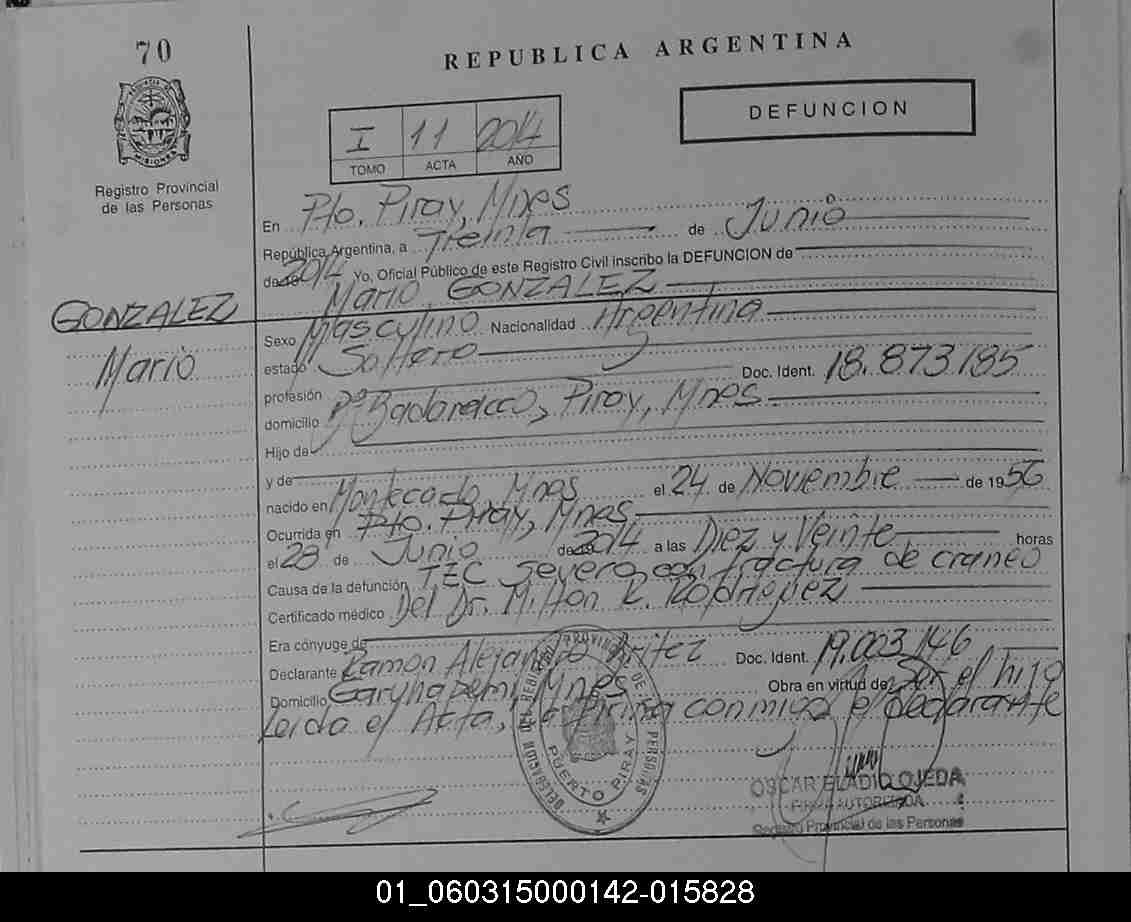 70
REPUBLICA ARGENTINA
PROVINCIA DE
MISIONES
DEFUNCION
I 11 2014
TOMO ACTA AÑO
Registro Provincial
de las Personas
En Pto. Piray, Mnes
República Argentina, a Treinta de Junio
de 2014 Yo, Oficial Público de este Registro Civil inscribo la DEFUNCION de
Mario GONZALEZ
GONZALEZ
Mario
Sexo Masculino Nacionalidad Argentina
estado Soltero
profesión Doc. Ident. 18.873.185
domicilio Bº Badaracco, Piray, Mnes
Hijo de
y de
nacido en Montecarlo, Mnes el 24 de Noviembre de 1956
Ocurrida en Pto. Piray, Mnes
el 28 de Junio de 2014 a las Diez y Veinte horas
Causa de la defunción TEC Severo con fractura de craneo
Certificado médico Del Dr. Milton R. Rodriguez
Era cónyuge de
Declarante Ramon Alejandro Doc. Ident. 19.003.146
Domicilio Garuhapemi, Mnes Obra en virtud de Ser el hijo
Leida el Acta, La Firma conmigo el declarante
DELEGACION DEL REGISTRO PROVINCIAL DE LAS PERSONAS
PUERTO PIRAY
OSCAR ELADIO OJEDA
FIRMA AUTORIZADA
Registro Provincial de las Personas
01_060315000142-015828